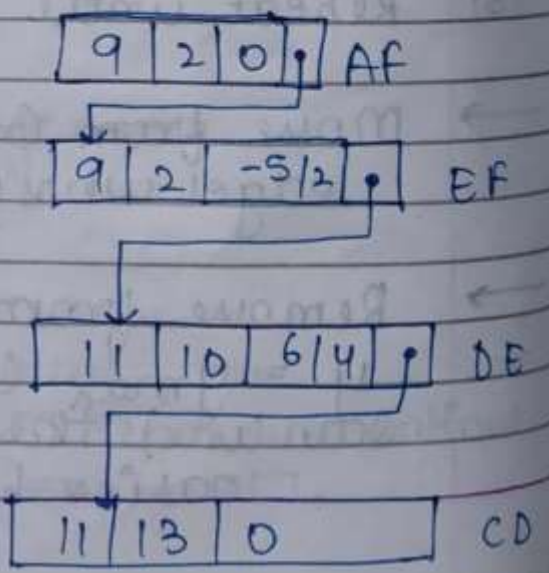 9 2 0 AF
9 2 -5/2 EF
11 10 6/4 DE
11 13 0 CD